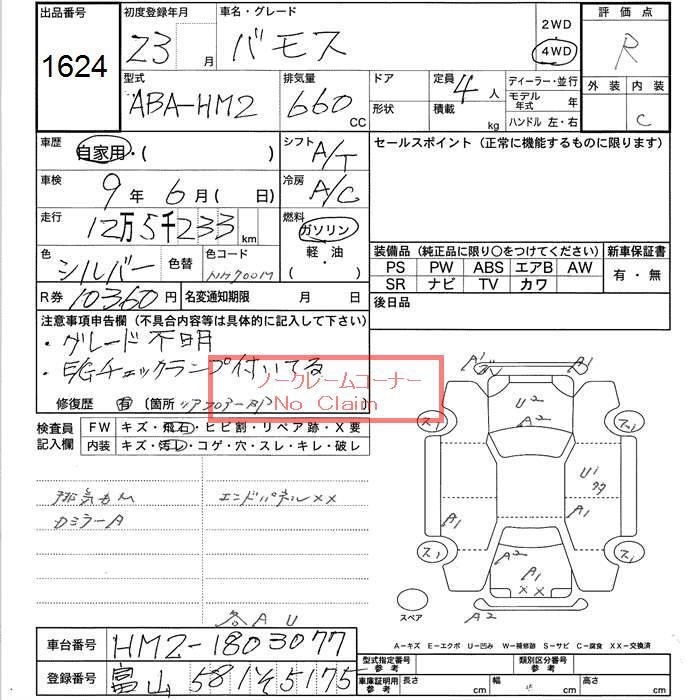 出品番号 初度登録年月 車名・グレード 2WD 評価点
1624 23 月 バモス 4WD R
型式 排気量 ドア 定員 ディーラー・並行 外装 内装
ABA-HM2 660 CC 4 人 モデル年式 年 C
形状 積載 kg ハンドル 左・右
車歴 自家用・( ) シフト A/T セールスポイント (正常に機能するものに限ります)
車検 9 年 6 月 ( 日) 冷房 A/C
走行 12万5千233 km 燃料 ガソリン
軽・油
( )
色 シルバー 色替 色コード NH700M 装備品 (純正品に限り○をつけてください) 新車保証書
PS PW ABS エアB AW 有・無
SR ナビ TV カワ
R券 10360 円 名変通知期限 月 日 後日品
注意事項申告欄 (不具合内容等は具体的に記入して下さい)
・グレード不明
・E/Gチェックランプ付いてる
ノークレームコーナー
No Claim
修復歴 有 (箇所
検査員記入欄 FW キズ・飛石・ヒビ割・リペア跡・X要
内装 キズ・汚レ・コゲ・穴・スレ・キレ・破レ
排気もれ エンドパネルXX
DミラーA
各AU
A1 A1
U2
A2
ス1 ス1
U1
A1 A1
A2
ス1 ス1
A1
XX
A2
スペア
A-キズ E-エクボ U-凹み W-補修跡 S-サビ C-腐食 XX-交換済
車台番号 HM2-1803077
登録番号 富山 581 そ 5175
型式指定番号 参考 類別区分番号 参考
車庫証明用参考 長さ cm 幅 cm 高さ cm